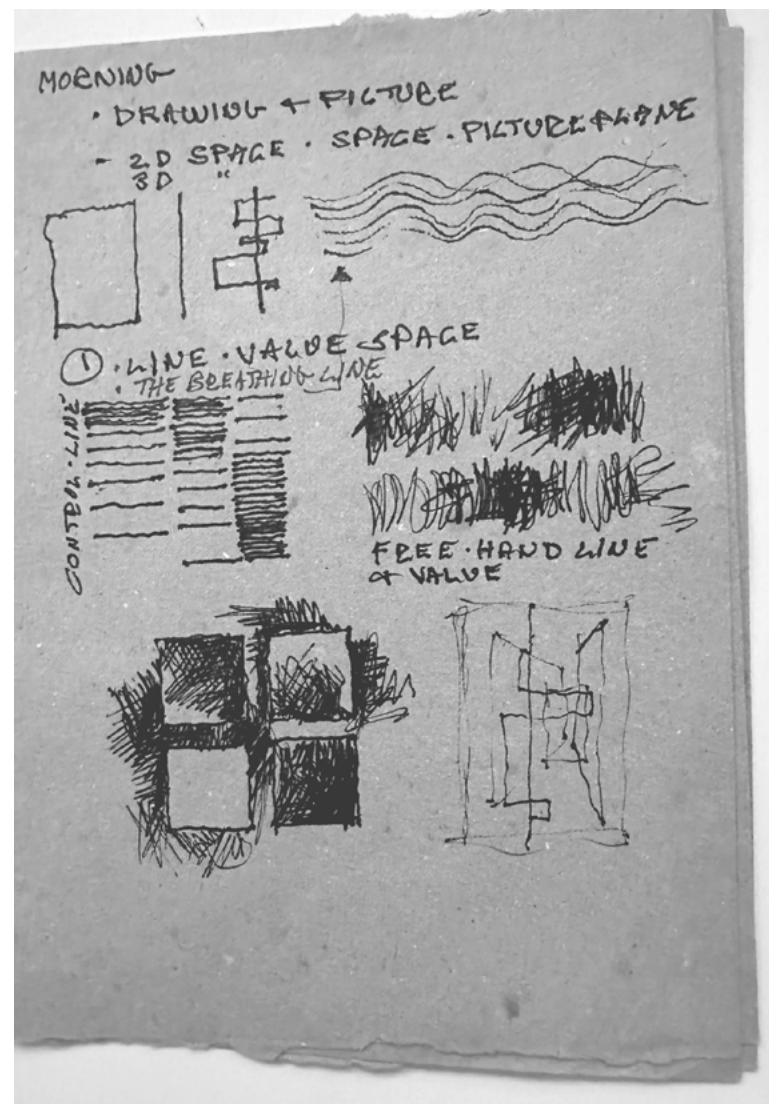 MORNING
· DRAWING & PICTURE
- 2D SPACE · SPACE · PICTURE PLANE
3D "
① · LINE · VALUE & SPACE
· THE BREATHING LINE
CONTROL · LINE
FREE · HAND LINE
& VALUE